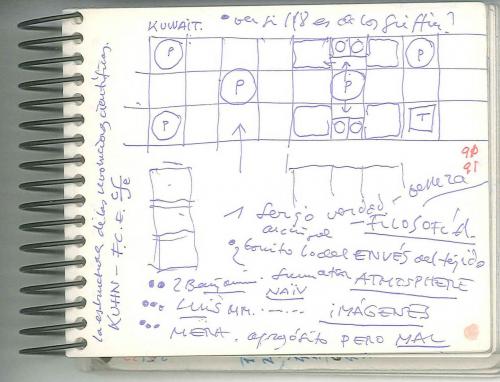 KUWAIT. • ver si 118 es de los Griffin?
P
P
P
P
P
T
90
91
La estructura de las revoluciones científicas.
KUHN - F.C.E. Sfe
belleza
1 Sergio verdad
- FILOSOFÍA.
2 bonito lo del ENVÉS del tejido
2 Benjamin. Sumatra ATMOSPHERE
NAÏV
LUIS MM. ..... IMÁGENES
MERA. a propósito PERO MAL